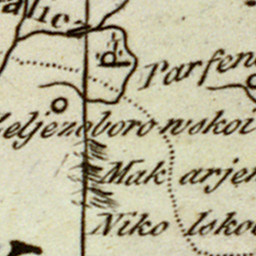 alicz
Parfen
Zeljezoborowskoi
Makarjen
Nikolskoi